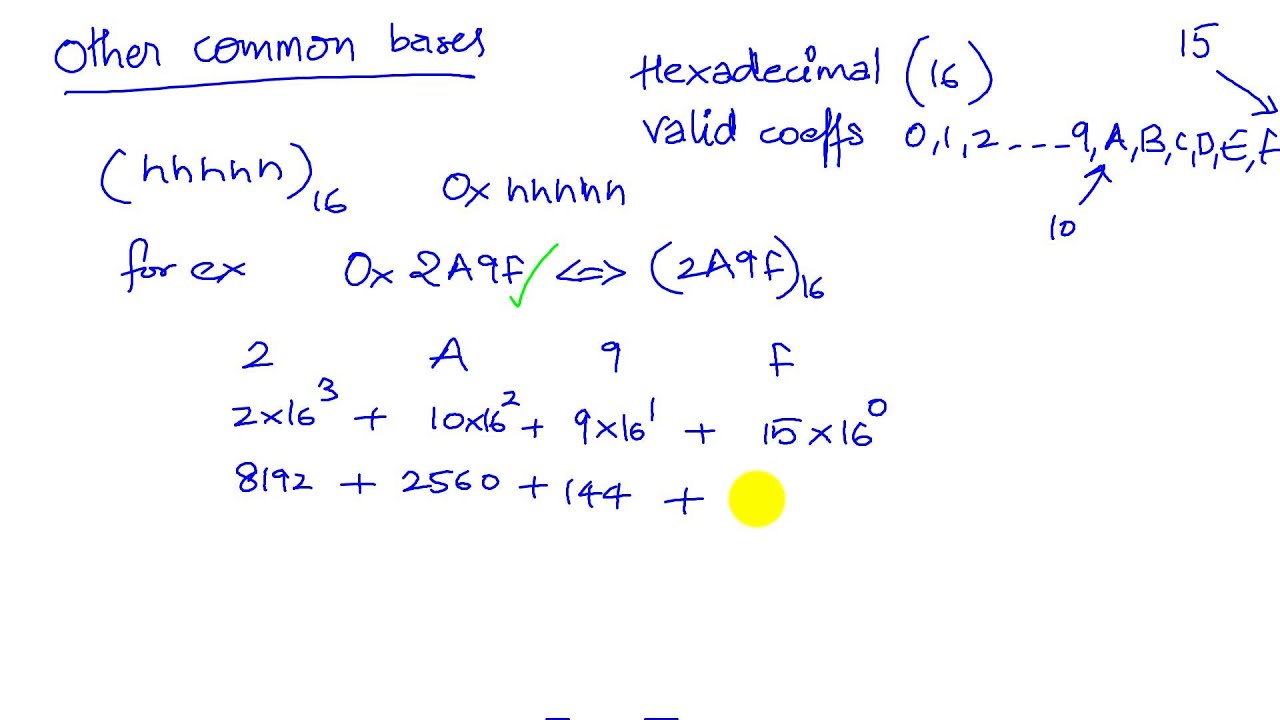 Other common bases
Hexadecimal (16)
15
valid coeffs 0,1,2----9,A,B,C,D,E,F
10
(hhhhh)₁₆ 0x hhhhh
for ex 0x 2A9F ⇔ (2A9F)₁₆
2 A 9 F
2×16³ + 10×16² + 9×16¹ + 15×16⁰
8192 + 2560 + 144 +